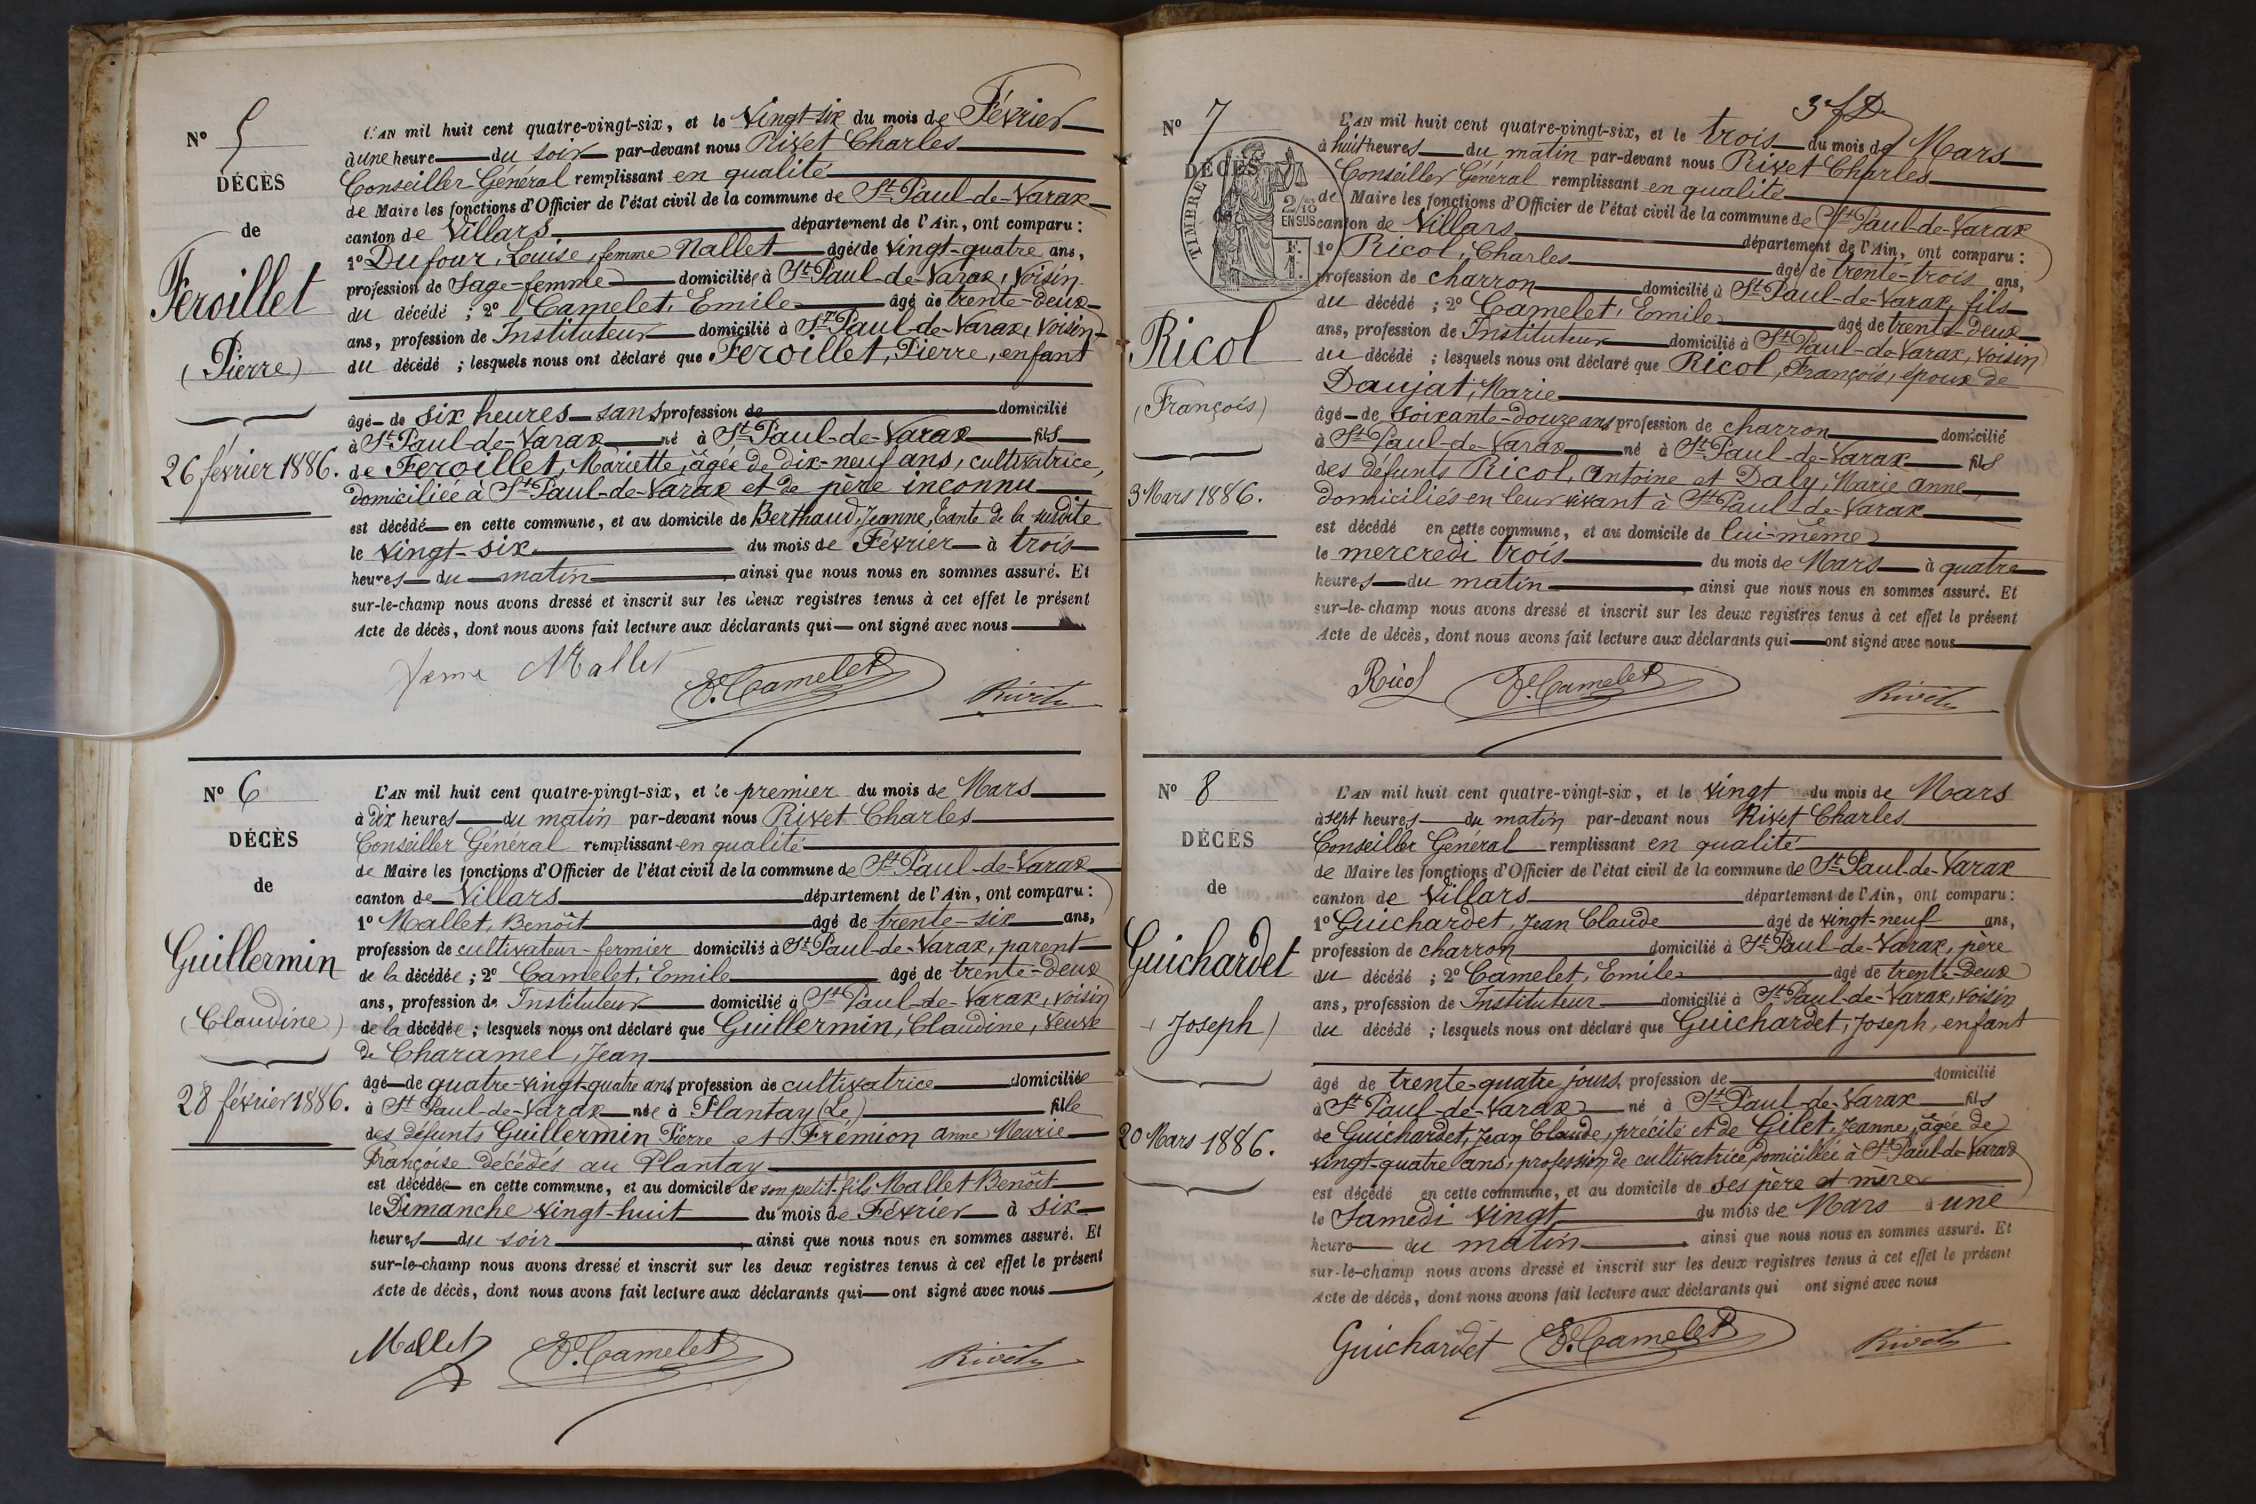 N° 5
DÉCÈS
de
Feroillet
(Pierre)
26 février 1886.
L'AN mil huit cent quatre-vingt-six, et le Vingt-six du mois de Février
à une heure du soir par-devant nous Rivet Charles
Conseiller Général remplissant en qualité
de Maire les fonctions d'Officier de l'état civil de la commune de St Paul-de-Varax
canton de Villars département de l'Ain, ont comparu :
1° Dufour, Louise, femme Mallet âgée de vingt-quatre ans,
profession de Sage-femme domiciliée à St Paul-de-Varax, voisin
du décédé ; 2° Camelet, Emile âgé de trente-deux
ans, profession de Instituteur domicilié à St Paul-de-Varax, voisin
du décédé ; lesquels nous ont déclaré que Feroillet, Pierre, enfant
âgé de six heures sans profession de domicilié
à St Paul-de-Varax né à St Paul-de-Varax fils
de Feroillet, Mariette, âgée de dix-neuf ans, cultivatrice,
domiciliée à St Paul-de-Varax et de père inconnu
est décédé en cette commune, et au domicile de Berthaud, Jeanne, tante de la susdite
le vingt-six du mois de Février à trois
heures du matin, ainsi que nous nous en sommes assuré. Et
sur-le-champ nous avons dressé et inscrit sur les deux registres tenus à cet effet le présent
Acte de décès, dont nous avons fait lecture aux déclarants qui ont signé avec nous
feme Mallet E. Camelet Rivet
N° 6
DÉCÈS
de
Guillermin
(Claudine)
28 février 1886.
L'AN mil huit cent quatre-vingt-six, et le premier du mois de Mars
à dix heures du matin par-devant nous Rivet Charles
Conseiller Général remplissant en qualité
de Maire les fonctions d'Officier de l'état civil de la commune de St Paul-de-Varax
canton de Villars département de l'Ain, ont comparu :
1° Mallet, Benoît âgé de trente-six ans,
profession de cultivateur-fermier domicilié à St Paul-de-Varax, parent
de la décédée ; 2° Camelet, Emile âgé de trente-deux
ans, profession de Instituteur domicilié à St Paul-de-Varax, voisin
de la décédée ; lesquels nous ont déclaré que Guillermin, Claudine, veuve
de Charamel, Jean
âgé de quatre-vingt-quatre ans profession de cultivatrice domiciliée
à St Paul-de-Varax née à Plantay (Le) fille
des défunts Guillermin Pierre et Frémion Anne Marie
Françoise décédés au Plantay
est décédée en cette commune, et au domicile de son petit-fils Mallet Benoît
le Dimanche vingt-huit du mois de Février à six
heures du soir, ainsi que nous nous en sommes assuré. Et
sur-le-champ nous avons dressé et inscrit sur les deux registres tenus à cet effet le présent
Acte de décès, dont nous avons fait lecture aux déclarants qui ont signé avec nous
Mallet E. Camelet Rivet
3e f D
N° 7
DÉCÈS
de
TIMBRE
2/10
EN SUS
Ricol
(François)
3 Mars 1886.
L'AN mil huit cent quatre-vingt-six, et le trois du mois de Mars
à huit heures du matin par-devant nous Rivet Charles
Conseiller Général remplissant en qualité
de Maire les fonctions d'Officier de l'état civil de la commune de St Paul-de-Varax
canton de Villars département de l'Ain, ont comparu :
1° Ricol, Charles âgé de trente-trois ans,
profession de charron domicilié à St Paul-de-Varax, fils
du décédé ; 2° Camelet, Emile âgé de trente-deux
ans, profession de Instituteur domicilié à St Paul-de-Varax, voisin
du décédé ; lesquels nous ont déclaré que Ricol, François, époux de
Daujat, Marie
âgé de soixante-douze ans profession de charron domicilié
à St Paul-de-Varax né à St Paul-de-Varax fils
des défunts Ricol, Antoine et Daly, Marie Anne,
domiciliés en leur vivant à St Paul-de-Varax
est décédé en cette commune, et au domicile de lui-même
le mercredi trois du mois de Mars à quatre
heures du matin, ainsi que nous nous en sommes assuré. Et
sur-le-champ nous avons dressé et inscrit sur les deux registres tenus à cet effet le présent
Acte de décès, dont nous avons fait lecture aux déclarants qui ont signé avec nous
Ricol E. Camelet Rivet
N° 8
DÉCÈS
de
Guichardet
(Joseph)
20 Mars 1886.
L'AN mil huit cent quatre-vingt-six, et le vingt du mois de Mars
à sept heures du matin par-devant nous Rivet Charles
Conseiller Général remplissant en qualité
de Maire les fonctions d'Officier de l'état civil de la commune de St Paul-de-Varax
canton de Villars département de l'Ain, ont comparu :
1° Guichardet, Jean Claude âgé de vingt-neuf ans,
profession de charron domicilié à St Paul-de-Varax, père
du décédé ; 2° Camelet, Emile âgé de trente-deux
ans, profession de Instituteur domicilié à St Paul-de-Varax, voisin
du décédé ; lesquels nous ont déclaré que Guichardet, Joseph, enfant
âgé de trente-quatre jours, profession de domicilié
à St Paul-de-Varax né à St Paul-de-Varax fils
de Guichardet, Jean Claude, précité et de Gilet, Jeanne, âgée de
vingt-quatre ans, profession de cultivatrice, domiciliée à St Paul-de-Varax
est décédé en cette commune, et au domicile de ses père et mère
le Samedi vingt du mois de Mars à une
heure du matin, ainsi que nous nous en sommes assuré. Et
sur-le-champ nous avons dressé et inscrit sur les deux registres tenus à cet effet le présent
Acte de décès, dont nous avons fait lecture aux déclarants qui ont signé avec nous
Guichardet E. Camelet Rivet